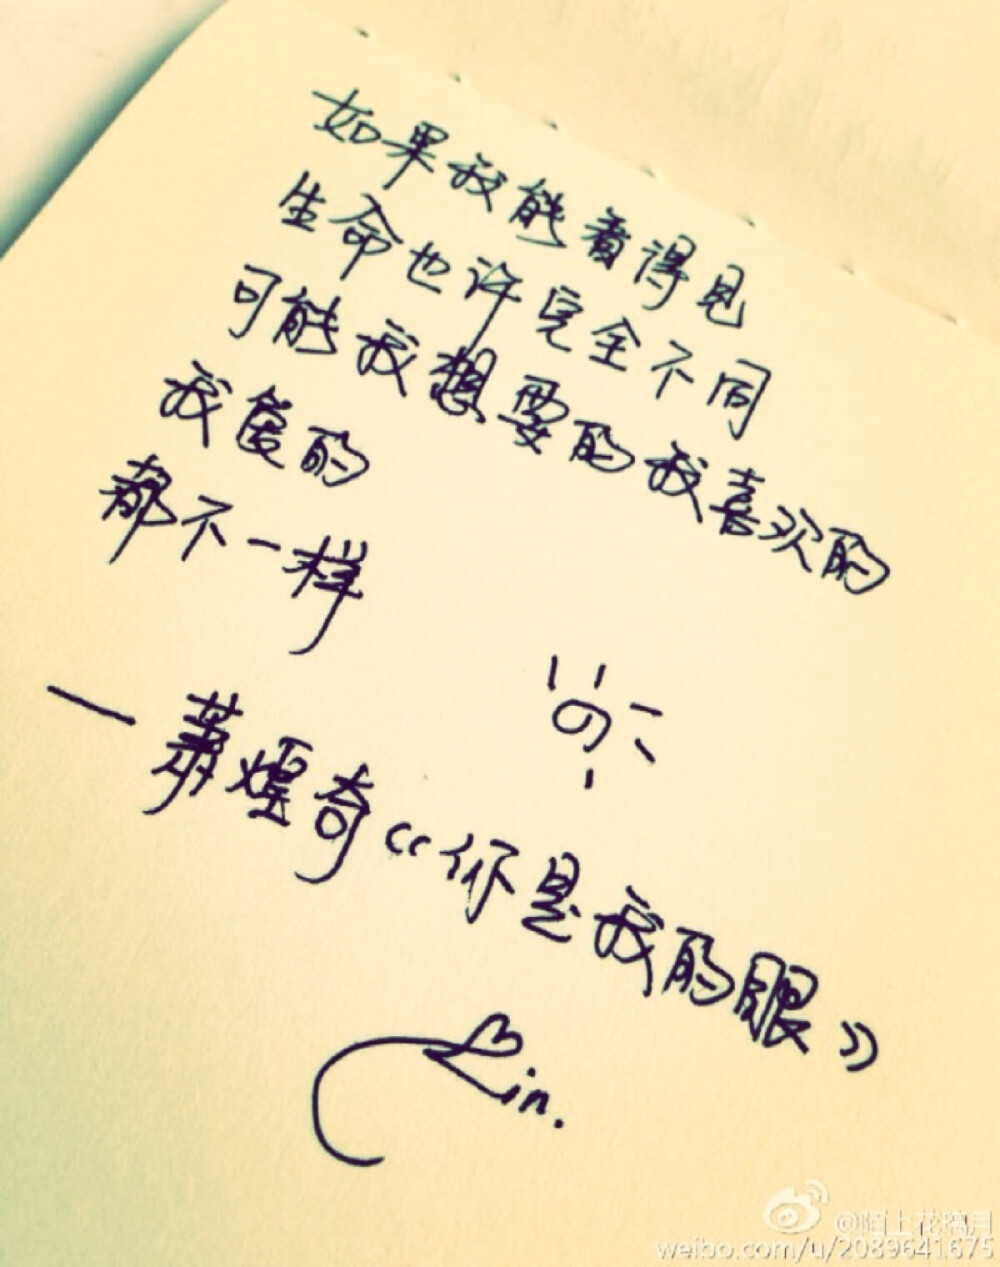 如果我能看得见
生命也许完全不同
可能我想要的我喜欢的
我爱的
都不一样
一萧煌奇《你是我的眼》
Lin.
@陌上花漪月
weibo.com/u/2089641675